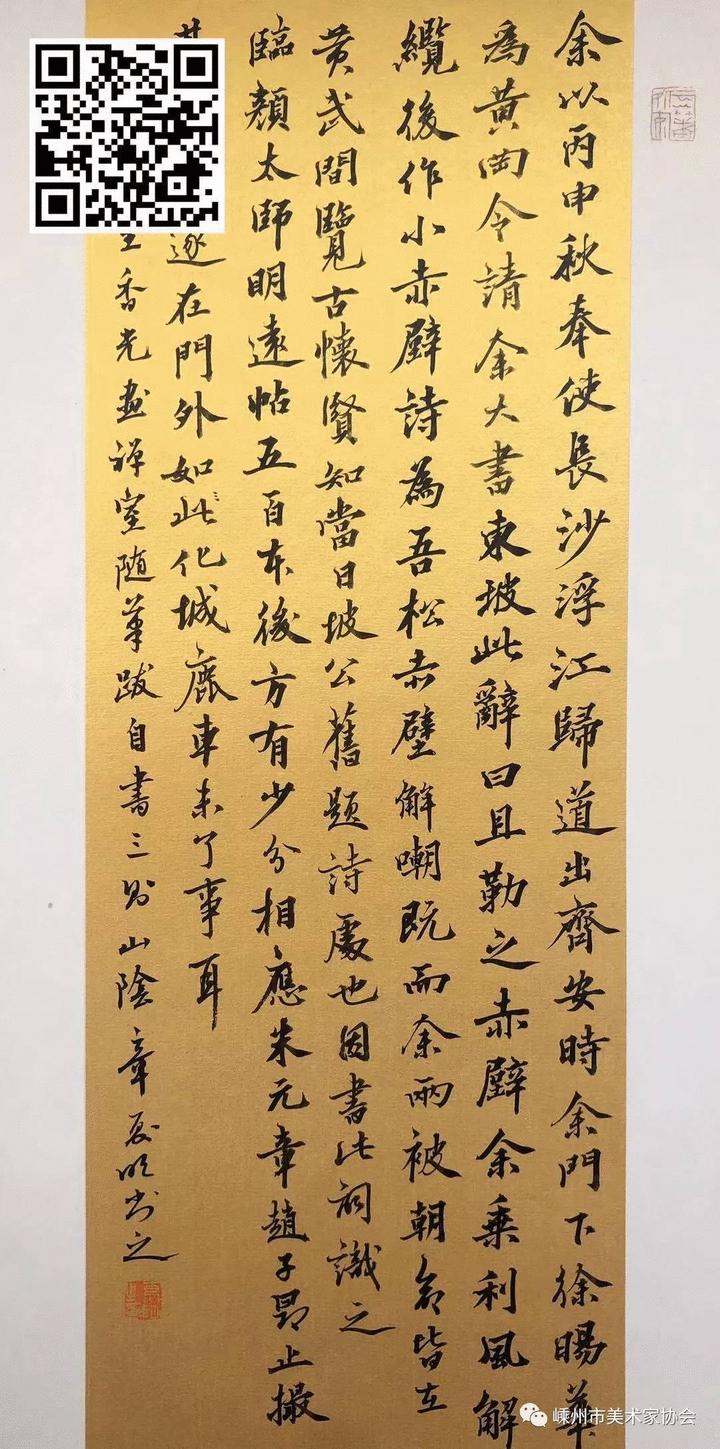 余以丙申秋奉使長沙浮江歸道出齊安時余門下徐暘華
為黃岡令請余大書東坡此辭曰且勒之赤壁余乗利風解
纜後作小赤壁詩為吾松赤壁解嘲既而余兩被朝命皆在
黄武間覽古懷賢知當日坡公舊題詩處也因書此詞識之
臨顏太師明遠帖五百本後方有少分相應米元章趙子昂止撮
其
遂在門外如此化城鹿車未了事耳
香光畫禅室随筆跋自書三則山陰章
書之
嵊州市美术家协会